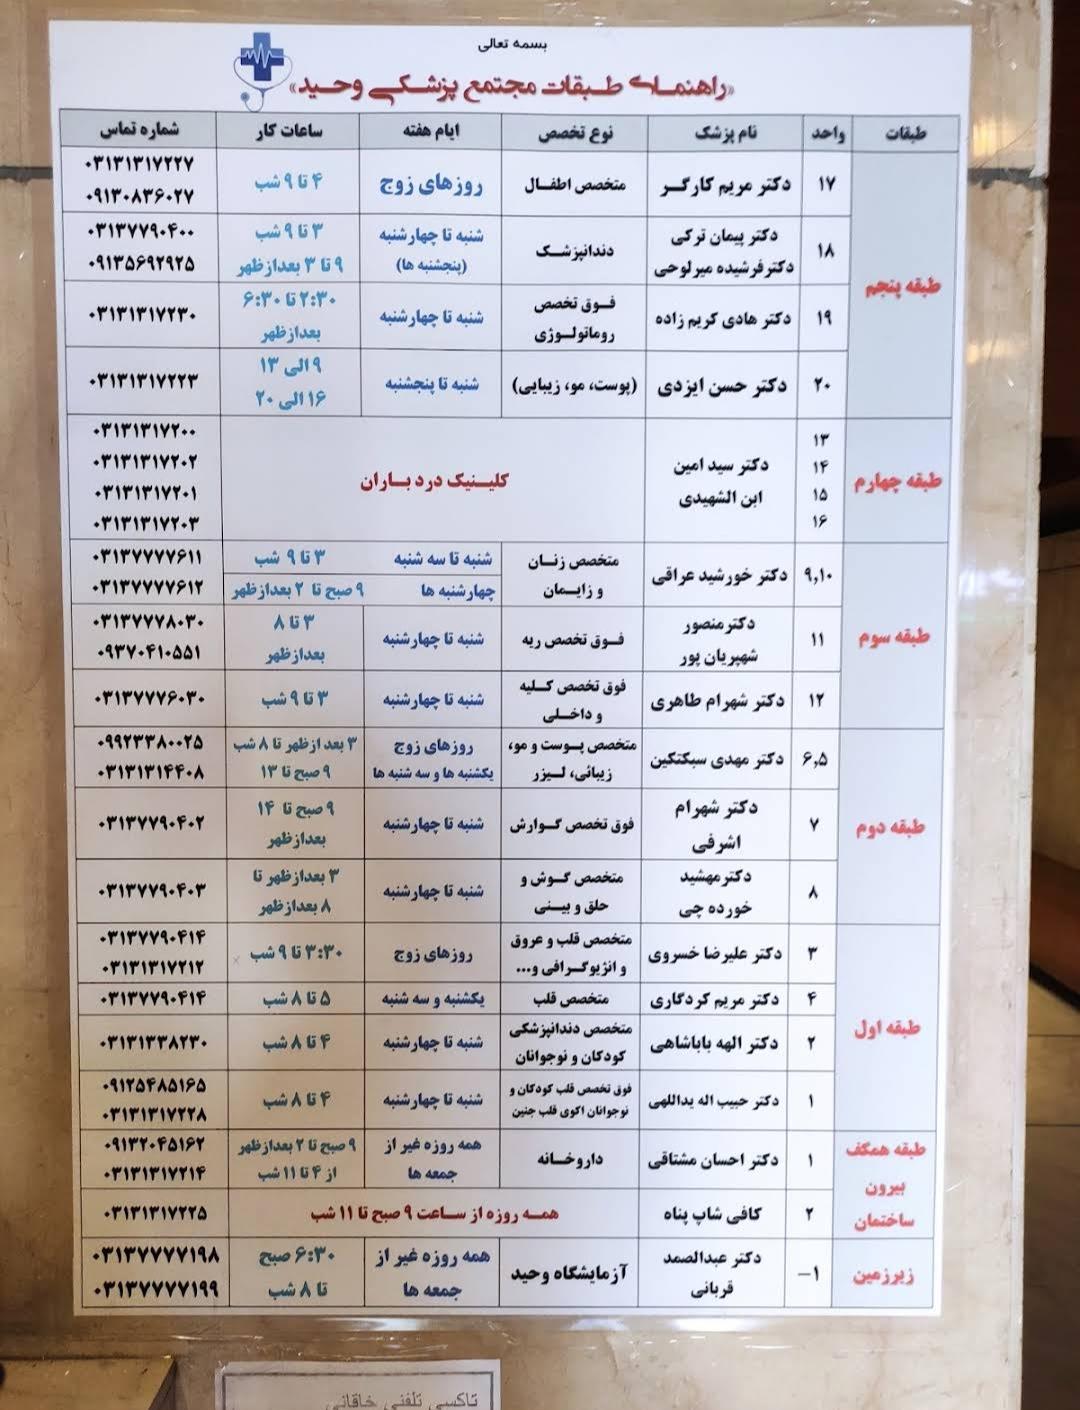 بسمه تعالی
«راهنمای طبقات مجتمع پزشکی وحید»
طبقات واحد نام پزشک نوع تخصص ایام هفته ساعات کار شماره تماس
طبقه پنجم
۱۷ دکتر مریم کارگر متخصص اطفال روزهای زوج ۴ تا ۹ شب ۰۳۱۳۱۳۱۷۲۲۷
۰۹۱۳۰۸۳۶۰۲۷
۱۸ دکتر پیمان ترکی دندانپزشک شنبه تا چهارشنبه ۳ تا ۹ شب ۰۳۱۳۷۷۹۰۴۰۰
دکتر فرشیده میرلوحی (پنجشنبه ها) ۹ تا ۳ بعدازظهر ۰۹۱۳۵۶۹۲۹۲۵
۱۹ دکتر هادی کریم زاده فوق تخصص شنبه تا چهارشنبه ۲:۳۰ تا ۶:۳۰ ۰۳۱۳۱۳۱۷۲۳۰
روماتولوژی بعدازظهر
۲۰ دکتر حسن ایزدی (پوست، مو، زیبایی) شنبه تا پنجشنبه ۹ الی ۱۳ ۰۳۱۳۱۳۱۷۲۲۳
۱۶ الی ۲۰
طبقه چهارم
۱۳ دکتر سید امین کلینیک درد باران ۰۳۱۳۱۳۱۷۲۰۰
۱۴ ابن الشهیدی ۰۳۱۳۱۳۱۷۲۰۲
۱۵ ۰۳۱۳۱۳۱۷۲۰۱
۱۶ ۰۳۱۳۱۳۱۷۲۰۳
طبقه سوم
۹,۱۰ دکتر خورشید عراقی متخصص زنان شنبه تا سه شنبه ۳ تا ۹ شب ۰۳۱۳۷۷۷۷۶۱۱
و زایمان چهارشنبه ها ۹ صبح تا ۲ بعدازظهر ۰۳۱۳۷۷۷۷۶۱۲
۱۱ دکتر منصور فوق تخصص ریه شنبه تا چهارشنبه ۳ تا ۸ ۰۳۱۳۷۷۷۸۰۳۰
شهپریان پور بعدازظهر ۰۹۳۷۰۴۱۰۵۵۱
۱۲ دکتر شهرام طاهری فوق تخصص کلیه شنبه تا چهارشنبه ۳ تا ۹ شب ۰۳۱۳۷۷۷۶۰۳۰
و داخلی
طبقه دوم
۶,۵ دکتر مهدی سبکتکین متخصص پوست و مو، روزهای زوج ۳ بعد ازظهر تا ۸ شب ۰۹۹۲۳۳۸۰۰۲۵
زیبائی، لیزر یکشنبه ها و سه شنبه ها ۹ صبح تا ۱۳ ۰۳۱۳۱۳۱۴۴۰۸
۷ دکتر شهرام فوق تخصص گوارش شنبه تا چهارشنبه ۹ صبح تا ۱۴ ۰۳۱۳۷۷۹۰۴۰۲
اشرفی بعدازظهر
۸ دکتر مهشید متخصص گوش و شنبه تا چهارشنبه ۳ بعدازظهر تا ۰۳۱۳۷۷۹۰۴۰۳
خورده چی حلق و بینی ۸ بعدازظهر
طبقه اول
۳ دکتر علیرضا خسروی متخصص قلب و عروق روزهای زوج ۳:۳۰ تا ۹ شب ۰۳۱۳۷۷۹۰۴۱۴
و انژیوگرافی و... ۰۳۱۳۱۳۱۷۲۱۲
۴ دکتر مریم کردگاری متخصص قلب یکشنبه و سه شنبه ۵ تا ۸ شب ۰۳۱۳۷۷۹۰۴۱۴
۲ دکتر الهه باباشاهی متخصص دندانپزشکی شنبه تا چهارشنبه ۴ تا ۸ شب ۰۳۱۳۱۳۳۸۲۳۰
کودکان و نوجوانان
۱ دکتر حبیب اله یداللهی فوق تخصص قلب کودکان و شنبه تا چهارشنبه ۴ تا ۸ شب ۰۹۱۲۵۴۸۵۱۶۵
نوجوانان اکوی قلب جنین ۰۳۱۳۱۳۱۷۲۲۸
طبقه همکف
بیرون
ساختمان
۱ دکتر احسان مشتاقی داروخانه همه روزه غیر از ۹ صبح تا ۲ بعدازظهر ۰۹۱۳۲۰۴۵۱۶۲
جمعه ها از ۴ تا ۱۱ شب ۰۳۱۳۱۳۱۷۲۱۴
۲ کافی شاپ پناه همه روزه از ساعت ۹ صبح تا ۱۱ شب ۰۳۱۳۱۳۱۷۲۲۵
زیرزمین
۱− دکتر عبدالصمد آزمایشگاه وحید همه روزه غیر از ۶:۳۰ صبح ۰۳۱۳۷۷۷۷۱۹۸
قربانی جمعه ها تا ۸ شب ۰۳۱۳۷۷۷۷۱۹۹
تاکسی تلفنی خاقانی